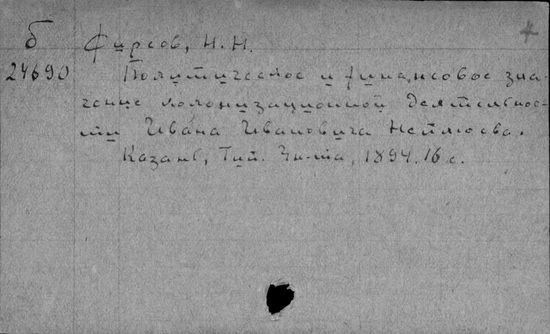 б Фирсов, Н.Н.
24690 Политическое и финансовое зна-
чение колонизационной деятельнос-
ти Ивана Ивановича Неплюева.
Казань, Тип. Ун-та, 1894. 16 с.